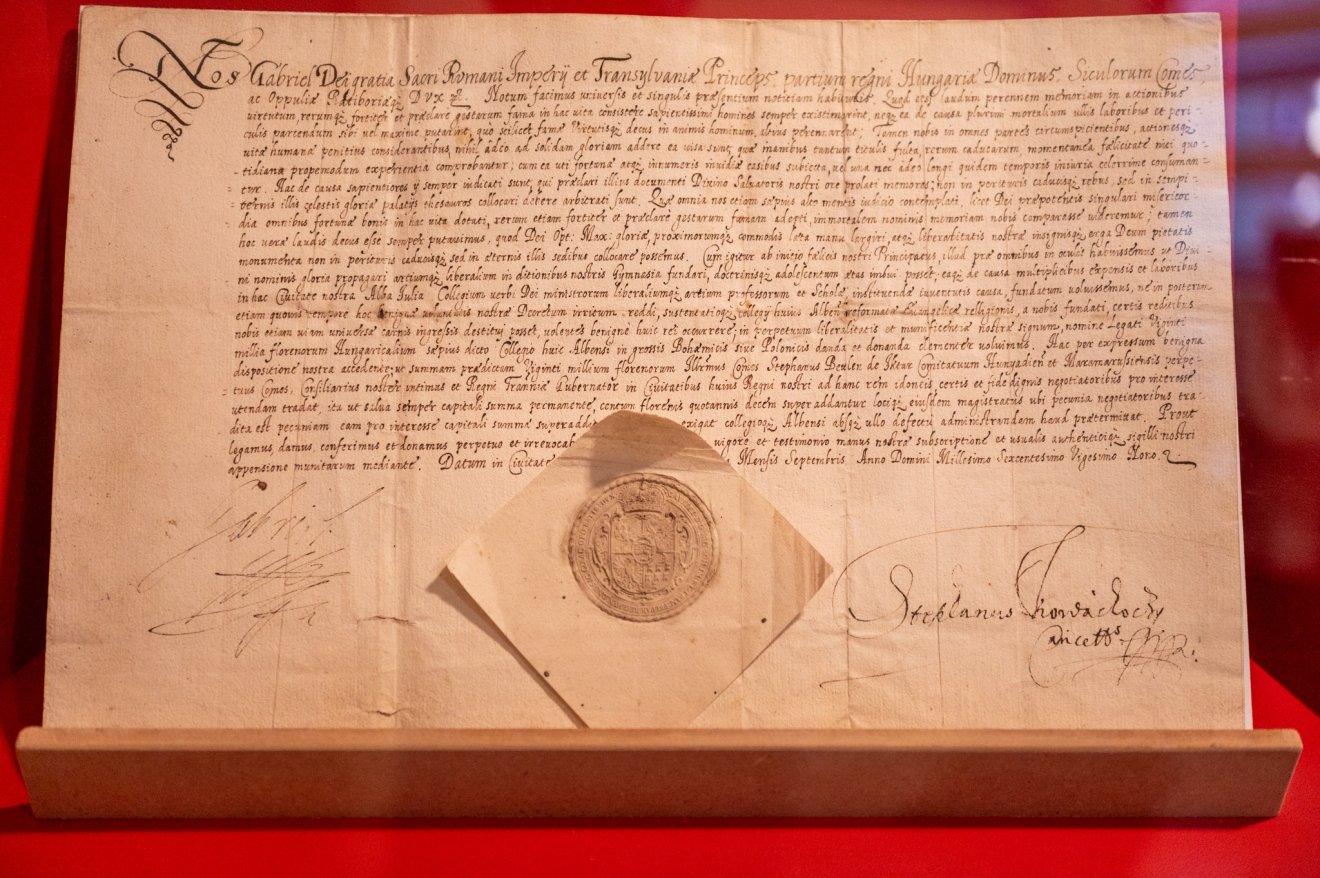 Nos Gabriel Dei gratia Sacri Romani Imperÿ et Transylvaniæ Princeps, partium regni Hungariæ Dominus, Siculorum Comes,
ac Oppuliæ Ratiboriæq; Dux Notum facimus universis et singulis præsentium notitiam habituris. Quod etsi laudum perennem memoriam in actionibus
virtutum, rerumq; fortiter et præclare gestarum fama in hac vita consistere sapientissimi homines semper existimarint, neq; ea de causa plurimi mortalium ullis laboribus et peri-
culis parcendum sibi vel maxime putarint, quo scilicet famæ virtutisq; decus in animis hominum, altius perennarent; Tamen nobis in omnes partes circumspicientibus, actionesq;
vitæ humanæ penitius considerantibus, nihil adeo ad solidam gloriam addere ea visa sunt, quæ inanibus tantum titulis fulta, rerum caducarum momentanea fælicitate niti quo-
tidiana propemodum experientia comprobantur; cum ea uti fortunæ atq; innumeris invidiæ casibus subiecta, vel una nec adeo longi quidem temporis iniuria celerrime consuman-
tur. Hac de causa sapientiores ij semper iudicati sunt, qui præclari illius documenti Divino Salvatoris nostri ore prolati memores, non in perituris caducisq; rebus, sed in sempi-
ternis illis cælestis gloriæ palatijs thesauros collocari debere arbitrati sunt. Quæ omnia nos etiam sæpius alto mentis iudicio contemplati, licet Dei præpotentis singulari misericor-
dia omnibus fortunæ bonis in hac vita dotati, rerum etiam fortiter et præclare gestarum famam adepti, immortalem nominis memoriam nobis comparasse videremur; tamen
hoc veræ laudis decus esse semper putavimus, quod Dei Opt: Max: gloriæ, proximorumq; commodis læta manu largiri, atq; liberalitatis nostræ insignisq; erga Deum pietatis
monumenta non in perituris caducisq; sed in æternis illis sedibus collocare possemus. Cum igitur ab initio fælicis nostri Principatus, illud præ omnibus in oculis habuissemus, ut Divi-
ni nominis gloria propagari artiumq; liberalium in ditionibus nostris Gymnasia fundari, doctrinisq; adolescentum ætas imbui posset, eaq; de causa multiplicibus expensis et laboribus
in hac Civitate nostra Alba Iulia Collegium verbi Dei ministrorum liberaliumq; artium professorum et Scholæ, instituendæ iuventutis causa, fundatum voluissemus, ne in posterum
etiam quovis tempore hoc benignæ voluntatis nostræ Decretum irritum reddi, sustentatioq; Collegÿ huius Albensis reformatæ Evangelicæ religionis, a nobis fundati, certis reditibus
nobis etiam viam universæ carnis ingressis destitui posset, volentes benigne huic rei occurrere, in perpetuum liberalitatis et munificentiæ nostræ signum, nomine Legati Viginti
millia florenorum Hungaricalium sæpius dicto Collegio huic Albensi in grossis Bohæmicis sive Polonicis danda et donanda clementer volvimus. Hac per expressum benigna
dispositione nostra accedente, ut summam prædictam Viginti millium florenorum Illrmus Comes Stephanus Betlen de Iktar Comitatuum Hunyadien et Maramarusiensis perpe-
tuus Comes, Consiliarius noster intimus et Regni Tranniæ Gubernator in Civitatibus huius Regni nostri ad hanc rem idoneis, certis et fide dignis negotiatoribus pro interesse
utendam tradat, ita ut salva semper capitali summa permanente, centum florenis quotannis decem superaddantur lociq; eiusdem magistratus ubi pecunia negotiatoribus tra-
dita est pecuniam eam pro interesse capitali summæ superaddit exigat collegioq; Albensi absq; ullo defectu administrandam haud prætermittat. Prout
legamus, damus, conferimus et donamus perpetuo et irrevocab vigore et testimonio manus nostræ subscriptione et usualis authenticiq; sigilli nostri
appensione munitarum mediante. Datum in Civitate Mensis Septembris Anno Domini Millesimo Sexcentesimo Vigesimo Nono.
Gabriel
Stephanus Kovacÿoczÿ
Cancells